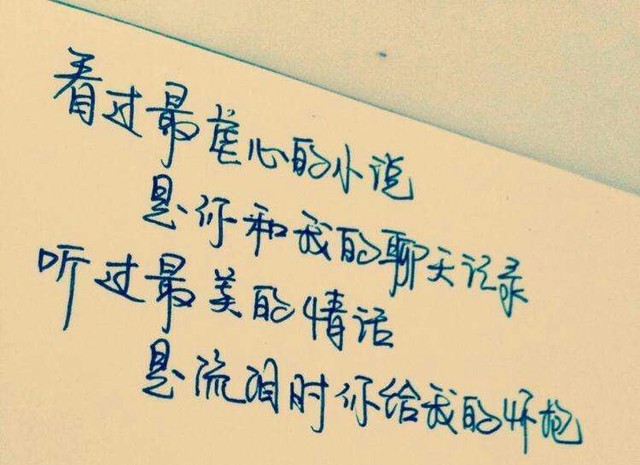 看过最虐心的小说
是你和我的聊天记录
听过最美的情话
是流泪时你给我的怀抱